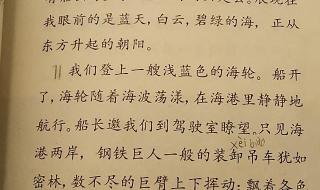 我眼前的是蓝天，白云，碧绿的海，正从
东方升起的朝阳。
11 我们登上一艘浅蓝色的海轮。船开
了，海轮随着海波荡漾，在海港里静静地
航行。船长邀我们到驾驶室瞭望。只见海
xiè
港两岸，钢铁巨人一般的装卸吊车犹如
密林，数不尽的巨臂上下挥动；飘着各色